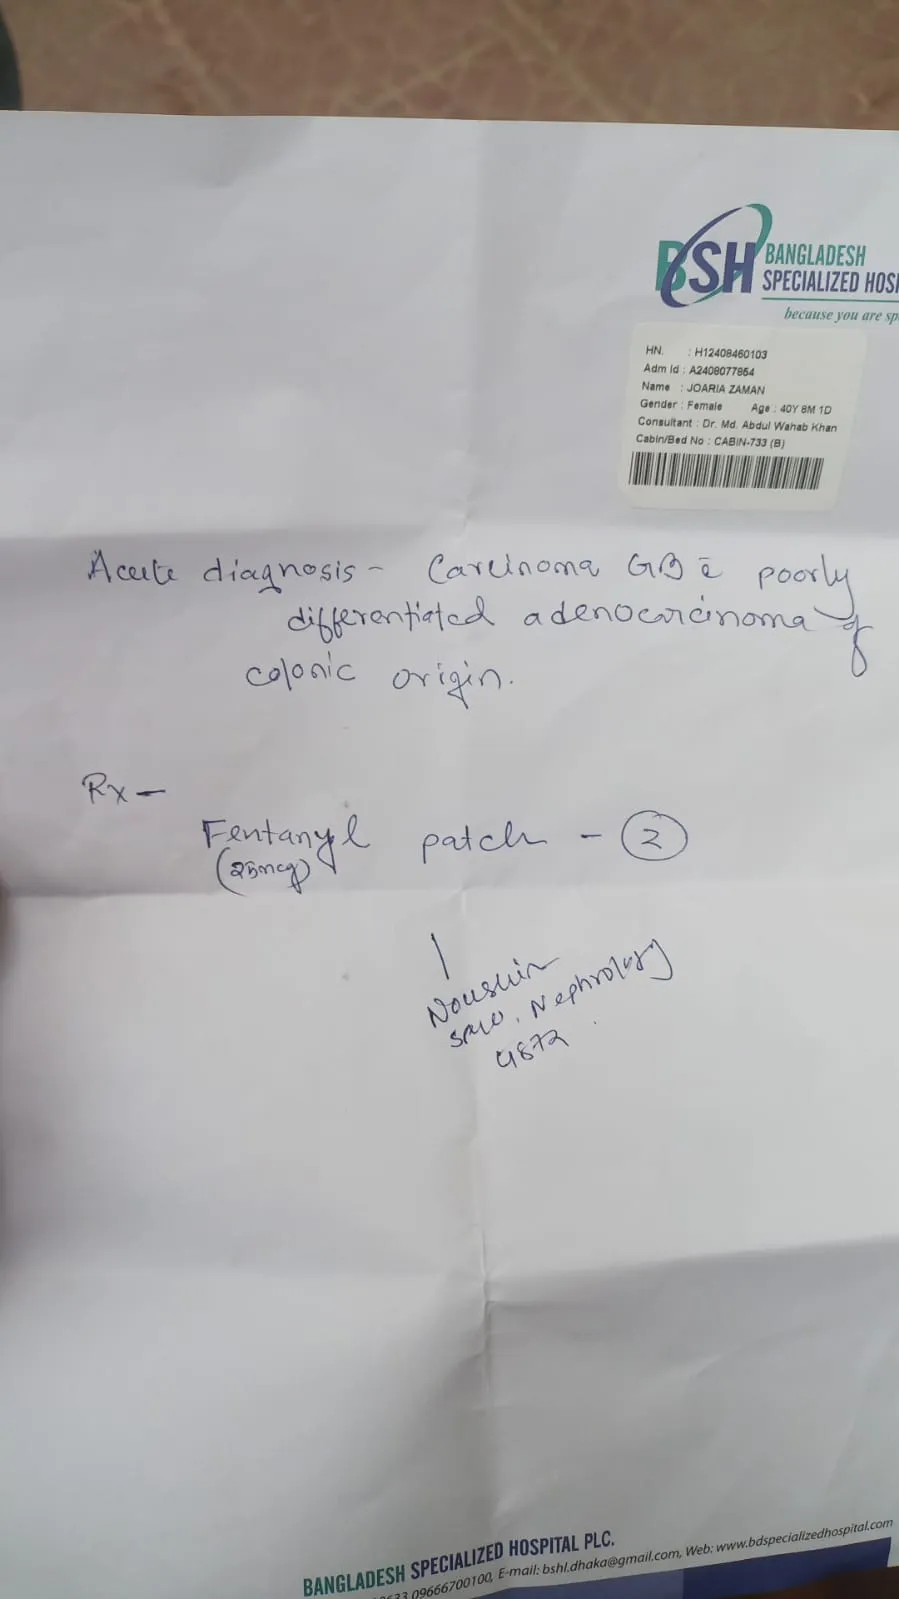 BSH BANGLADESH
SPECIALIZED HOSP
because you are sp
HN. : H12408460103
Adm Id : A2408077854
Name : JOARIA ZAMAN
Gender : Female Age : 40Y 8M 1D
Consultant : Dr. Md. Abdul Wahab Khan
Cabin/Bed No : CABIN-733 (B)
Acute diagnosis - Carcinoma GB c̄ poorly
differentiated adenocarcinoma of
colonic origin.
Rx -
Fentanyl patch - 2
(25mcg)
Noushin
SMO, Nephrology
4872
BANGLADESH SPECIALIZED HOSPITAL PLC.
09666700100, E-mail: bshl.dhaka@gmail.com, Web: www.bdspecializedhospital.com